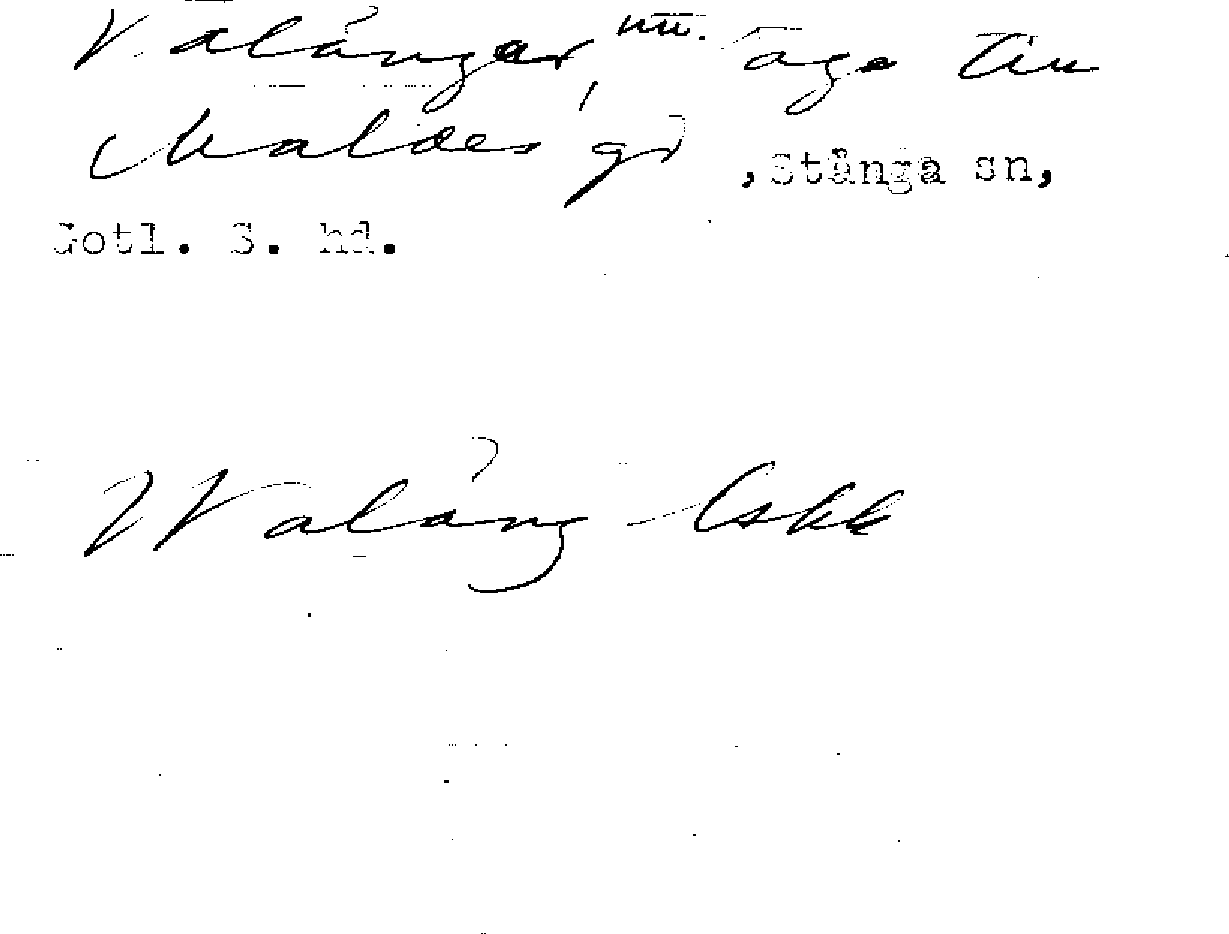 Valångar, äga till
Maldes gd, Stånga sn,
Gotl. S. hd.
Walång